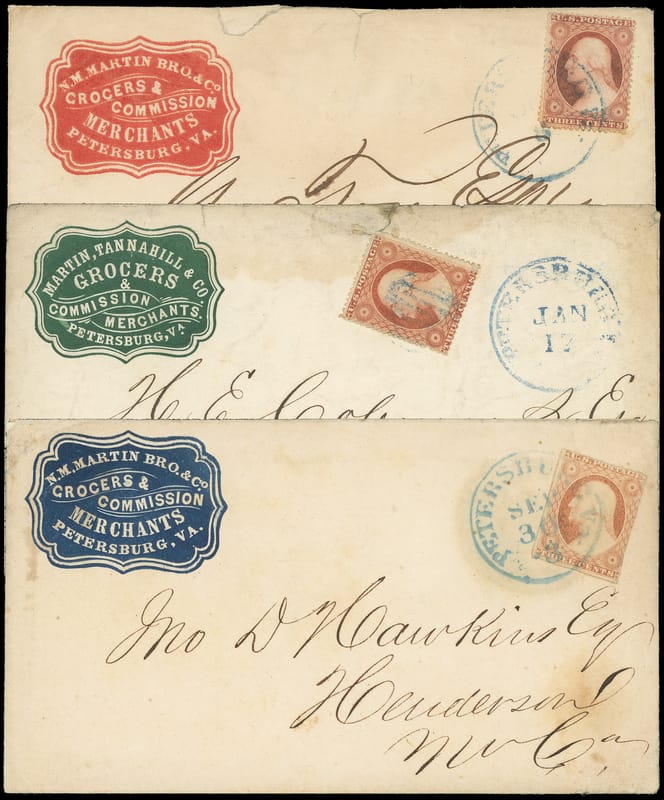 N. M. MARTIN BRO. & Co
GROCERS &
COMMISSION
MERCHANTS
PETERSBURG, VA.
U.S. POSTAGE
THREE CENTS
MARTIN, TANNAHILL & CO.
GROCERS
&
COMMISSION
MERCHANTS.
PETERSBURG, VA
U.S. POSTAGE
THREE CENTS
PETERSBURG
JAN
17
H. E.
N. M. MARTIN BRO. & Co
GROCERS &
COMMISSION
MERCHANTS
PETERSBURG, VA.
PETERSBURG
SEP
30
U.S. POSTAGE
THREE CENTS
Jno D Hawkins Esq
Henderson